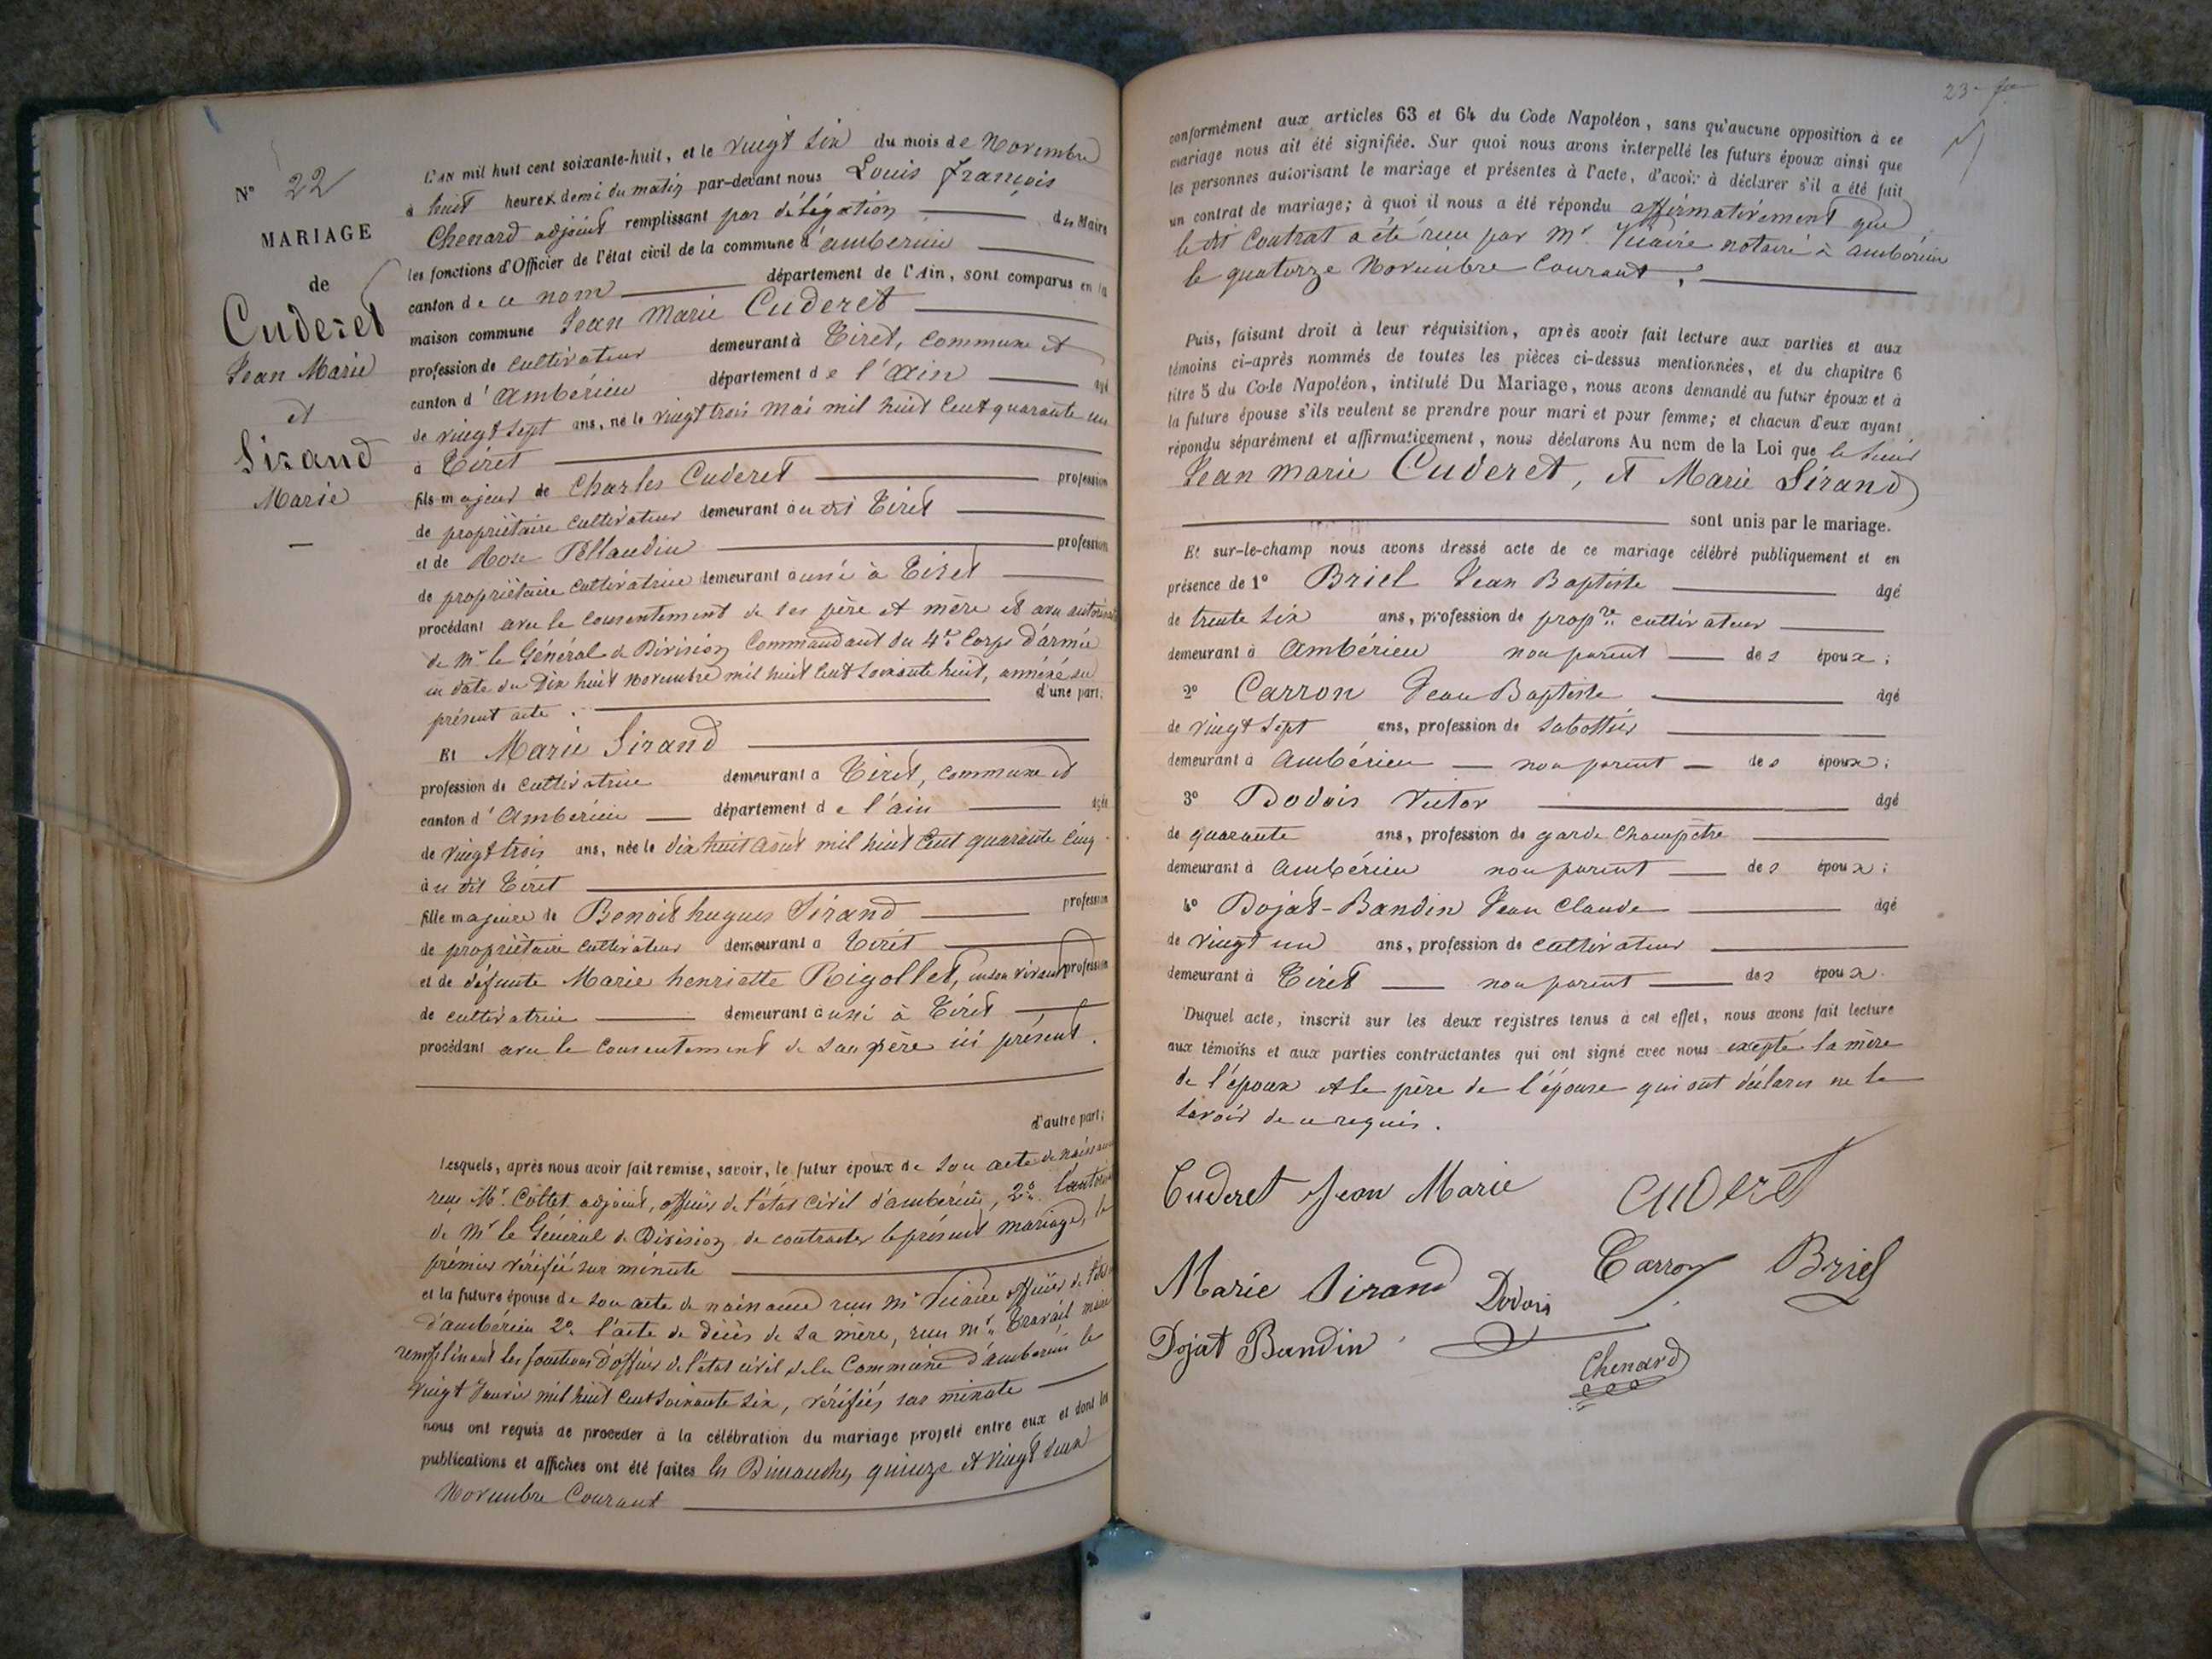 N° 22
MARIAGE
de
Cuderet
Jean Marie
et
Sirand
Marie
L'AN mil huit cent soixante-huit, et le vingt six du mois de Novembre
à huit heures demi du matin par-devant nous Louis François
Chenard adjoint remplissant par délégation du Maire
les fonctions d'Officier de l'état civil de la commune d'ambérieu
canton de ce nom département de l'Ain, sont comparus en la
maison commune Jean Marie Cuderet
profession de cultivateur demeurant à Tiret, commune et
canton d'Ambérieu département de l'ain agé
de vingt sept ans, né le vingt trois mai mil huit cent quarante un
à Tiret
fils majeur de Charles Cuderet profession
de propriétaire cultivateur demeurant au dit Tiret
et de Rose Pellaudin profession
de propriétaire cultivatrice demeurant aussi à Tiret
procédant avec le consentement de ses père et mère et avec
de Mr le Général de Division Commandant du 4e Corps d'armée
en date du Dix huit novembre mil huit cent soixante huit, annéxé au
présent acte. d'une part;
Et Marie Sirand
profession de cultivatrice demeurant à Tiret, commune et
canton d'Ambérieu département de l'ain agée
de vingt trois ans, née le dix huit août mil huit cent quarante cinq
au dit Tiret
fille majeure de Benoit hugues Sirand profession
de propriétaire cultivateur demeurant à Tiret
et de défunte Marie henriette Rigollet, en son vivant profession
de cultivatrice demeurant aussi à Tiret
procédant avec le consentement de son père ici présent.
d'autre part;
Lesquels, après nous avoir fait remise, savoir, le futur époux de son acte de
reçu Mr Collet adjoint, officier de l'état civil d'ambérieu, 2°
de Mr le Général de Division de contracter le présent mariage, le
prémier vérifié sur minute
et la future épouse de son acte de naissance reçu Mr Vicaire officier de
d'ambérieu 2° l'acte de décès de sa mère, reçu Mr Travail maire
remplissant les fonctions d'officier de l'état civil de la Commune d'ambérieu le
vingt Janvier mil huit cent soixante six, vérifiés sur minute
nous ont requis de procéder à la célébration du mariage projeté entre eux et dont les
publications et affiches ont été faites les Dimanches quinze et vingt deux
Novembre Courant
23
conformément aux articles 63 et 64 du Code Napoléon, sans qu'aucune opposition à ce
mariage nous ait été signifiée. Sur quoi nous avons interpellé les futurs époux ainsi que
les personnes autorisant le mariage et présentes à l'acte, d'avoir à déclarer s'il a été fait
un contrat de mariage; à quoi il nous a été répondu affirmativement que
le dit Contrat a été reçu par Mr Vicaire notaire à ambérieu
le quatorze Novembre Courant.
Puis, faisant droit à leur réquisition, après avoir fait lecture aux parties et aux
témoins ci-après nommés de toutes les pièces ci-dessus mentionnées, et du chapitre 6
titre 5 du Code Napoléon, intitulé Du Mariage, nous avons demandé au futur époux et à
la future épouse s'ils veulent se prendre pour mari et pour femme; et chacun d'eux ayant
répondu séparément et affirmativement, nous déclarons Au nom de la Loi que le Sieur
Jean marie Cuderet, et Marie Sirand
sont unis par le mariage.
Et sur-le-champ nous avons dressé acte de ce mariage célébré publiquement et en
présence de 1° Briel Jean Baptiste âgé
de trente six ans, profession de propre cultivateur
demeurant à Ambérieu non parent des époux;
2° Carron Jean Baptiste âgé
de vingt sept ans, profession de sabottier
demeurant à ambérieu non parent des époux;
3° Dodois Victor âgé
de quarante ans, profession de garde champêtre
demeurant à ambérieu non parent des époux;
4° Dojat-Bandin Jean Claude âgé
de vingt un ans, profession de cultivateur
demeurant à Tiret non parent des époux.
Duquel acte, inscrit sur les deux registres tenus à cet effet, nous avons fait lecture
aux témoins et aux parties contractantes qui ont signé avec nous excepté la mère
de l'époux et le père de l'épouse qui ont déclarer ne le
savoir de ce requis.
Cuderet Jean Marie Cuderet
Marie Sirand Dodois Carron Briel
Dojat Bandin
Chenard